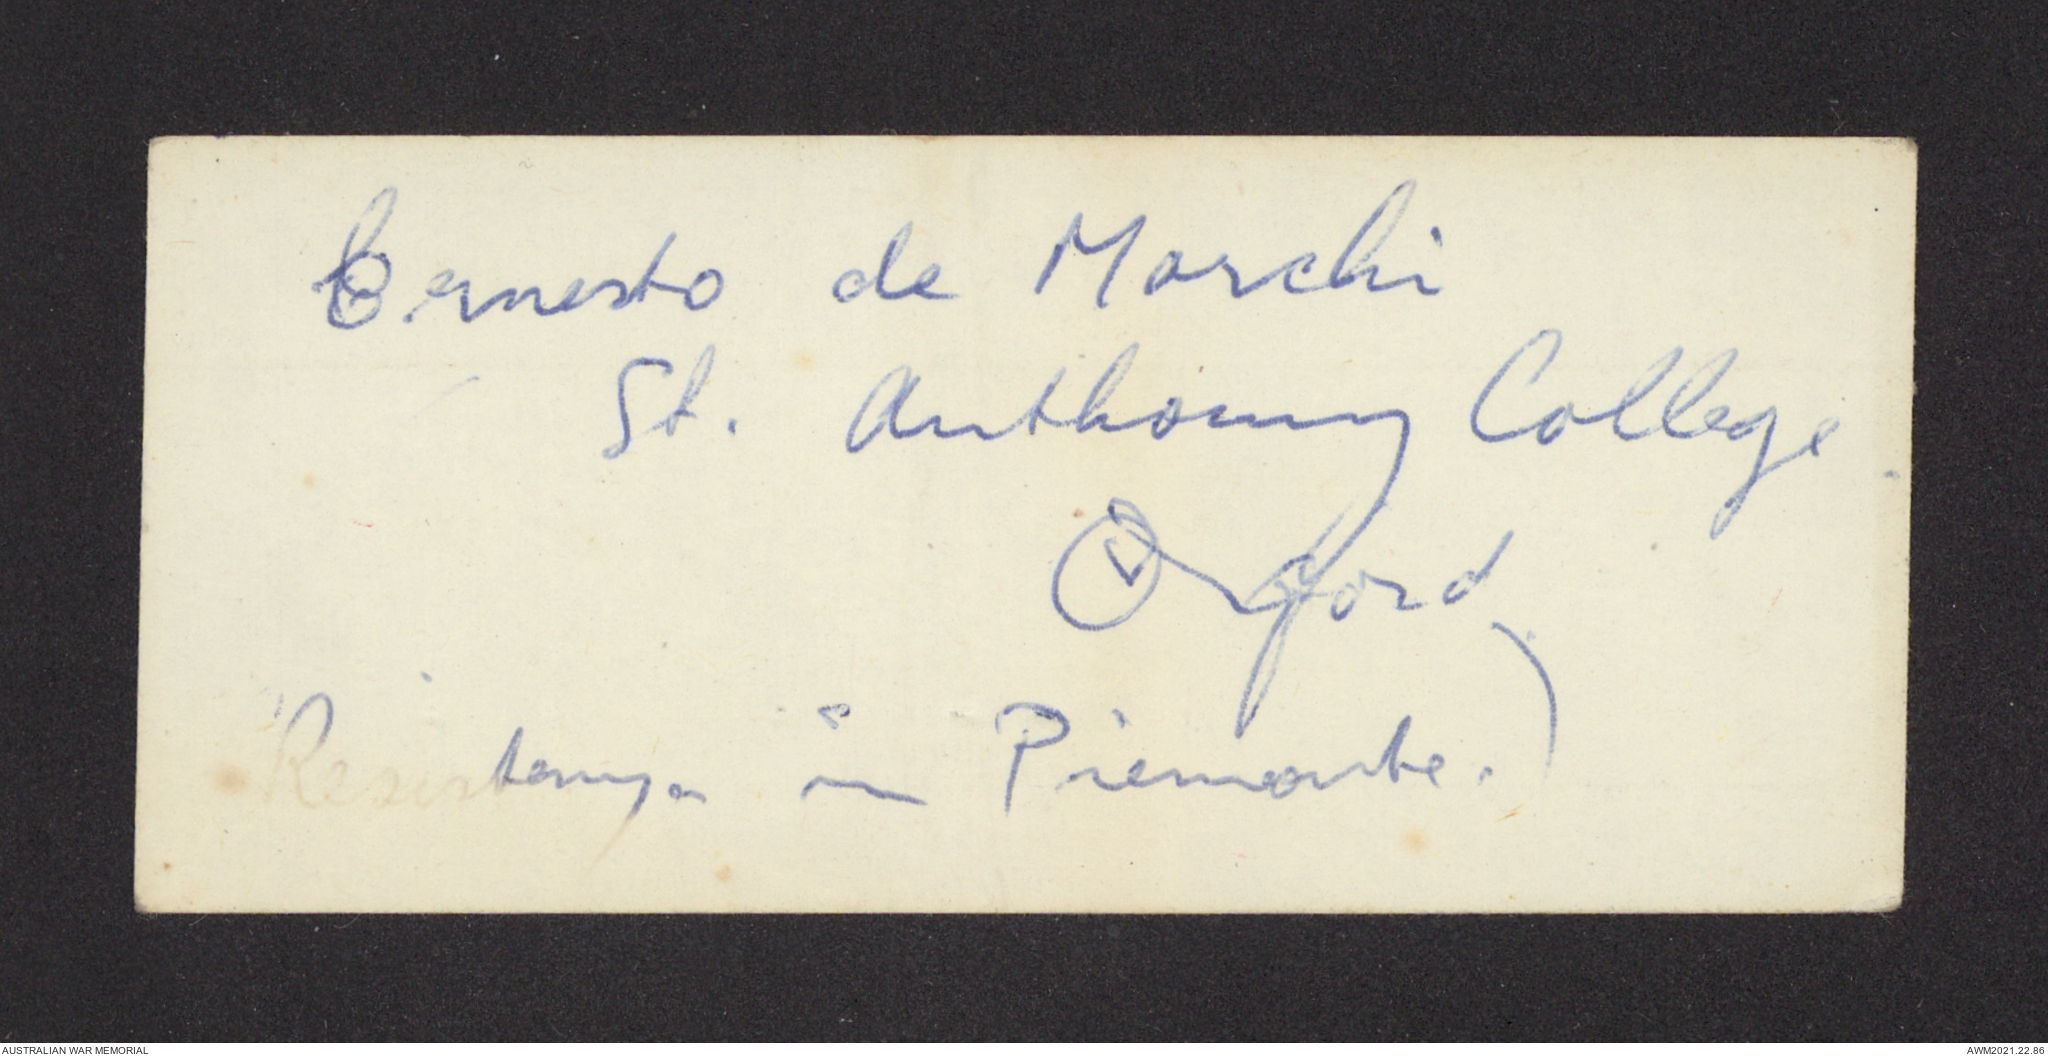 Ernesto de Marchi
St. Anthony College.
Oxford
Resistenza in Piemonte.)
AUSTRALIAN WAR MEMORIAL
AWM2021.22.86